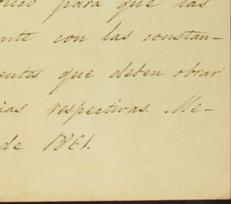 para que las
con las constan-
entes que deben obrar
ias respectivas. Me-
de 1861.